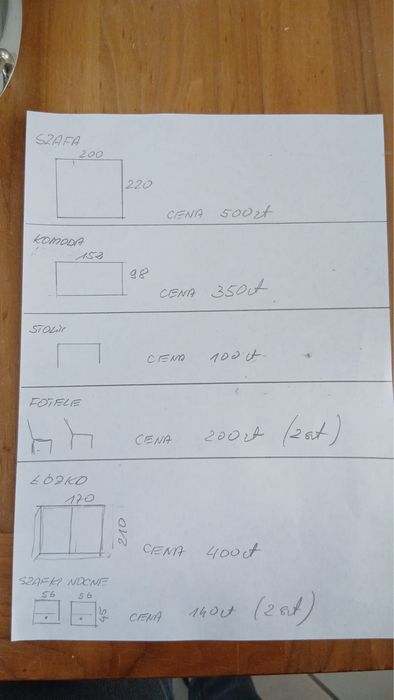 SZAFA
200
220
CENA 500zł
KOMODA
152
98
CENA 350zł
STOLIK
CENA 100zł
FOTELE
CENA 200zł (2szt)
ŁÓŻKO
170
210
CENA 400zł
SZAFKI NOCNE
56 56
45
CENA 140zł (2szt)